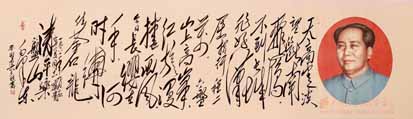 天高云淡
望断南
飞雁
不到长城
非好汉
屈指行程二
万 六盘
山上高峰
红旗漫
卷西风
今日长缨在
手何
时缚
住苍龙
清平乐
六盘山
毛泽东